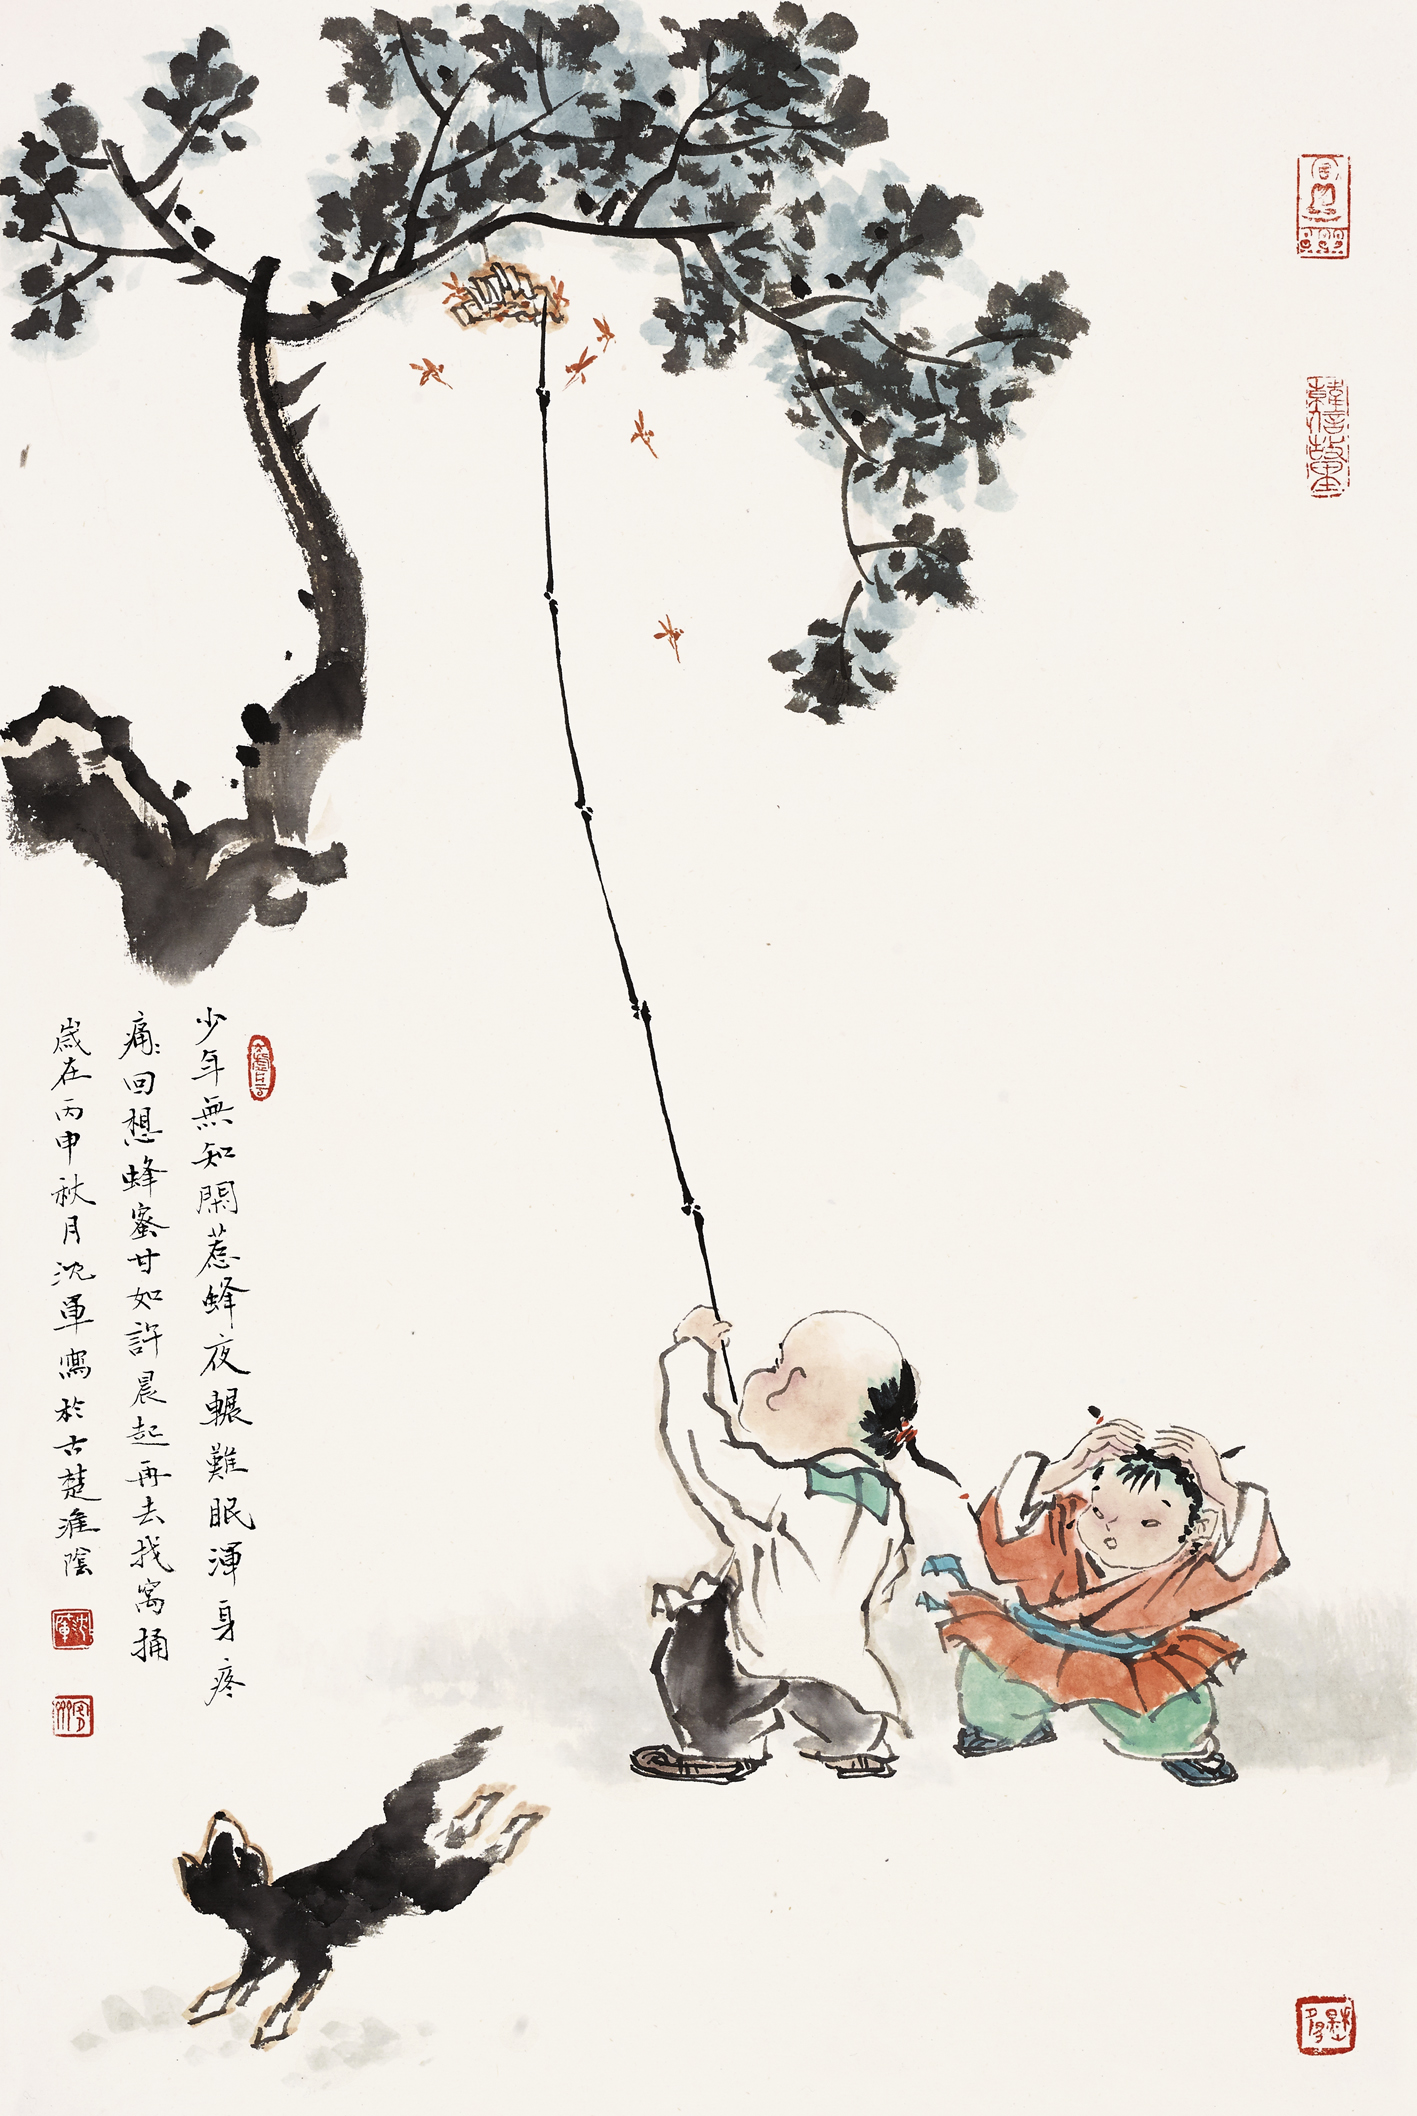 少年無知閑惹蜂夜輾難眠渾身疼
痛:回想蜂蜜甘如許晨起再去找窩捅
歲在丙申秋月沈軍寫於古楚淮陰
韓信故里